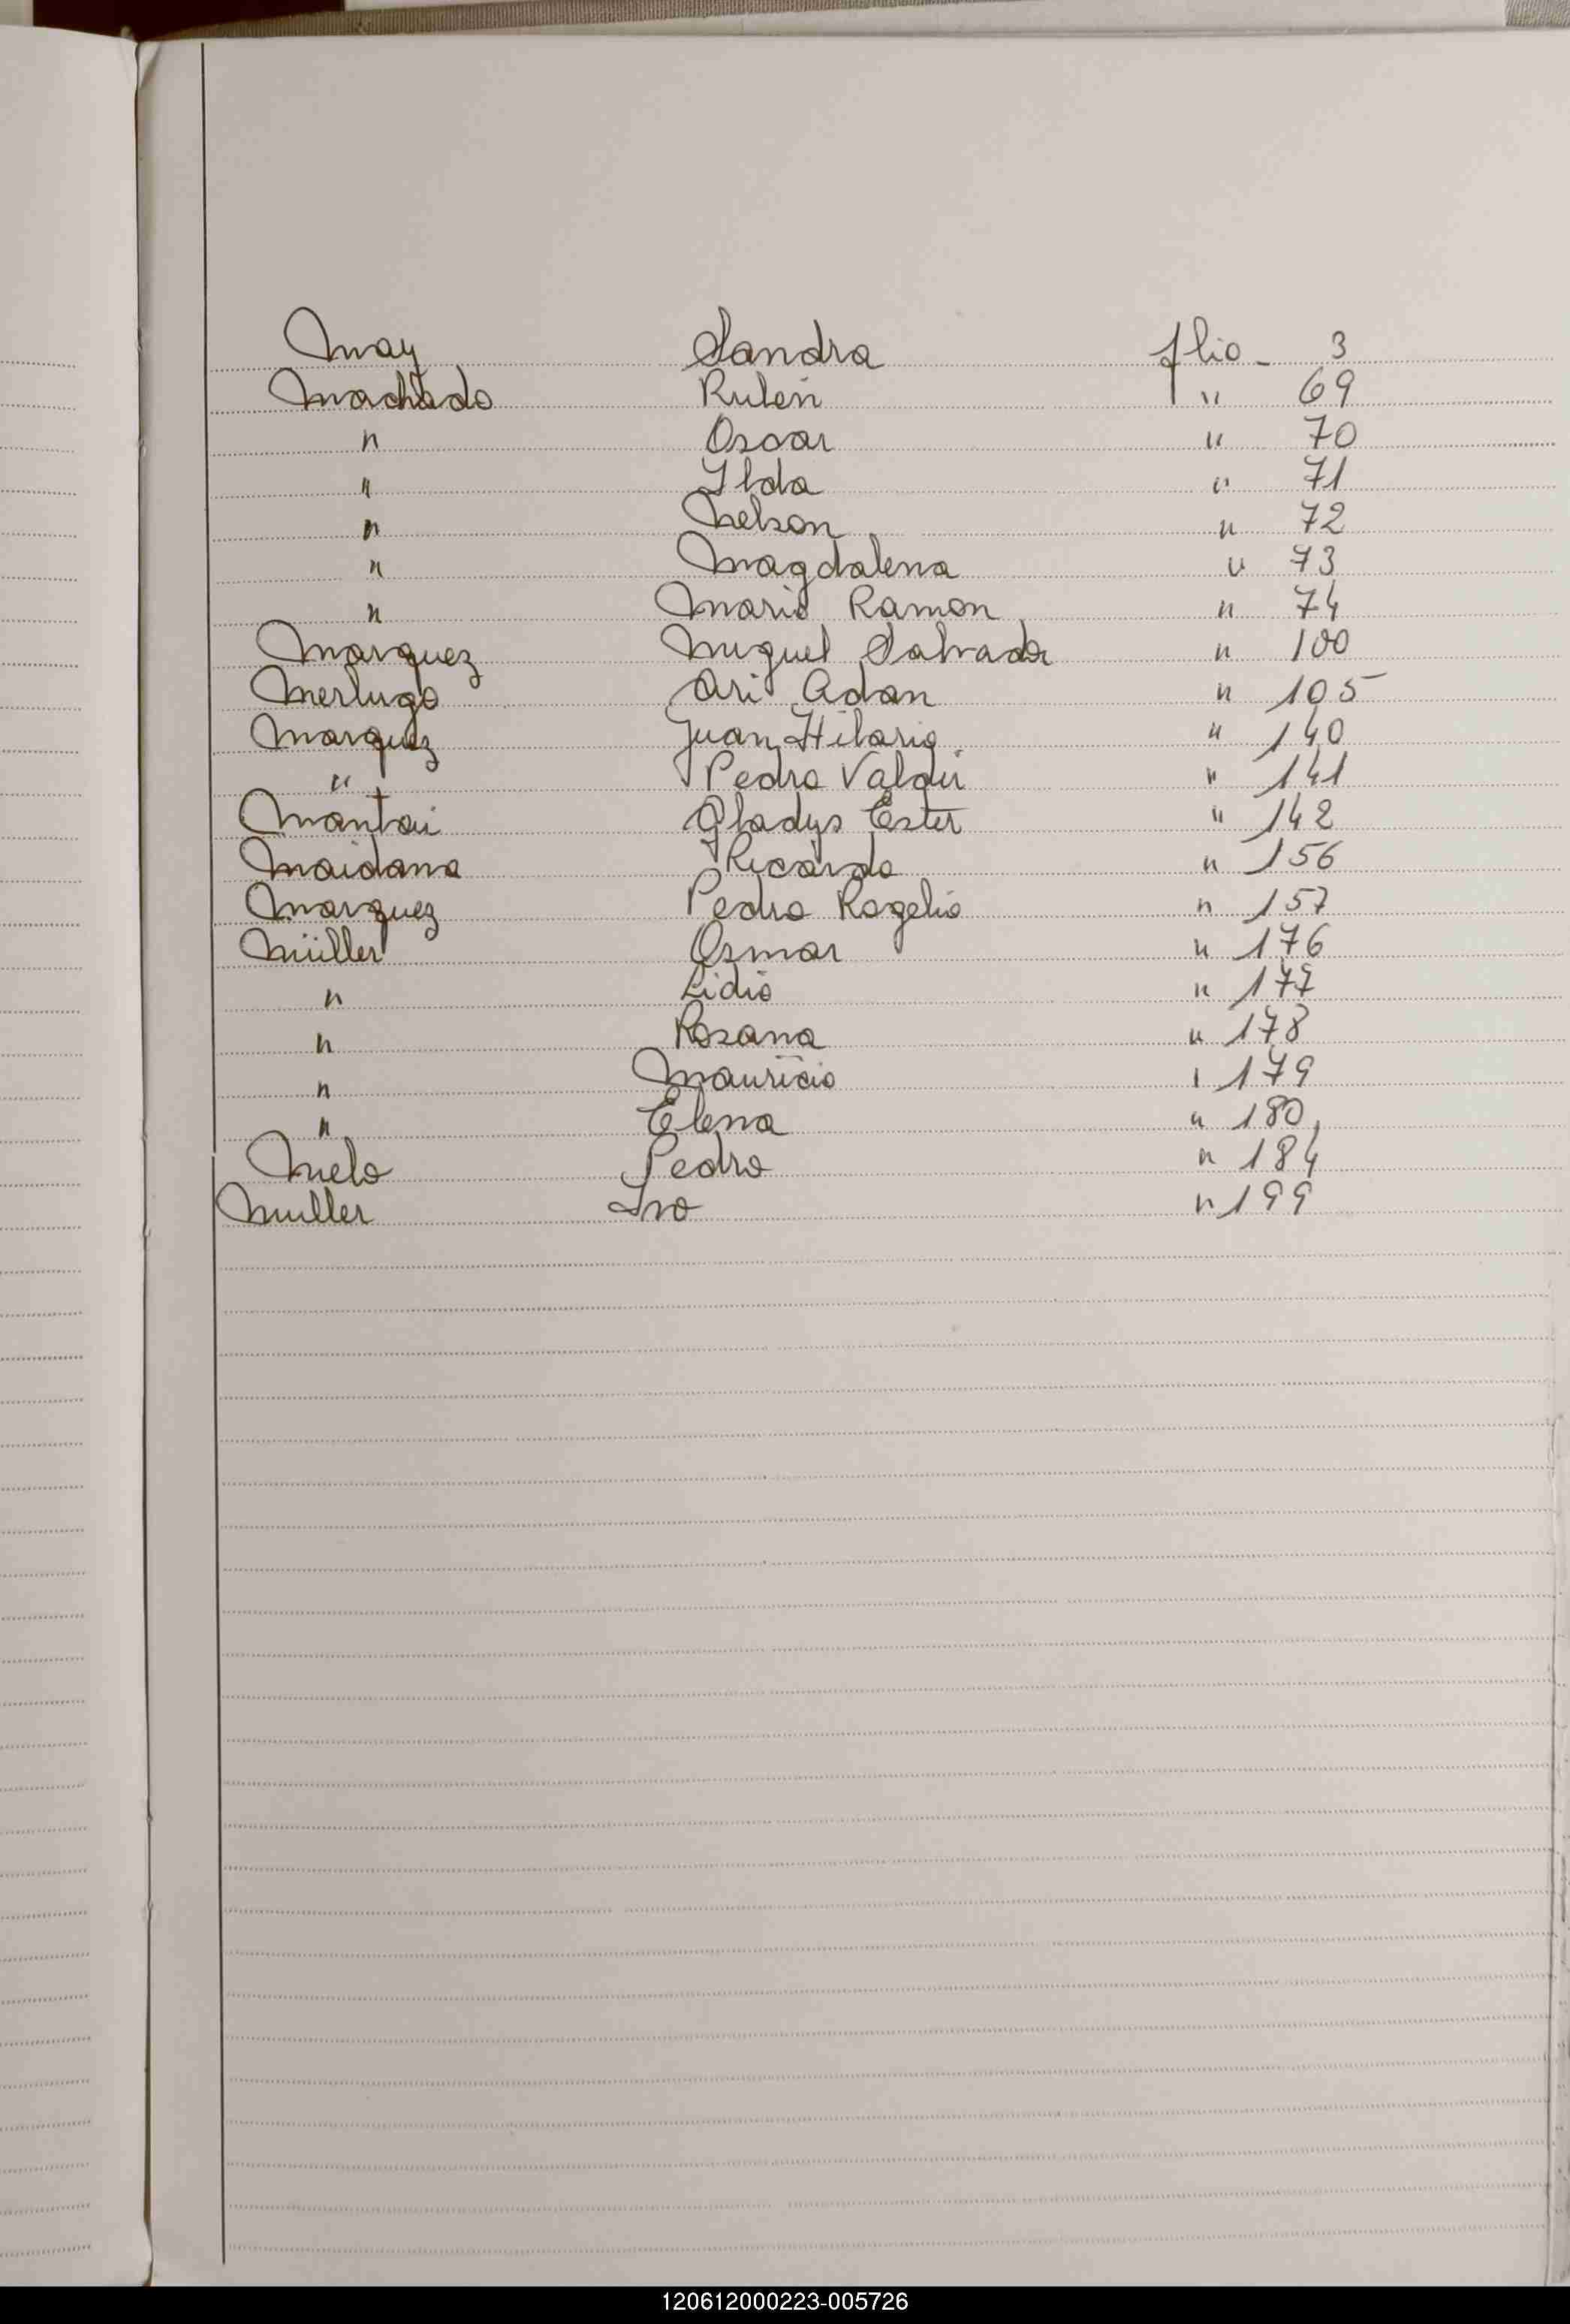 May Sandra flio - 3
Machado Ruben " 69
" Oscar " 70
" Ilda " 71
" Nelson " 72
" Magdalena " 73
" Mario Ramon " 74
Marquez Miguel Salvador " 100
Merlugo Ari Adan " 105
Marquez Juan Hilario " 140
" Pedro Valdir " 141
Mantai Gladys Ester " 142
Maidana Ricardo " 156
Marquez Pedro Rogelio " 157
Müller Osmar " 176
" Lidio " 177
" Rosana " 178
" Mauricio " 179
" Elena " 180
Melo Pedro " 184
Muller Ivo " 199
120612000223-005726